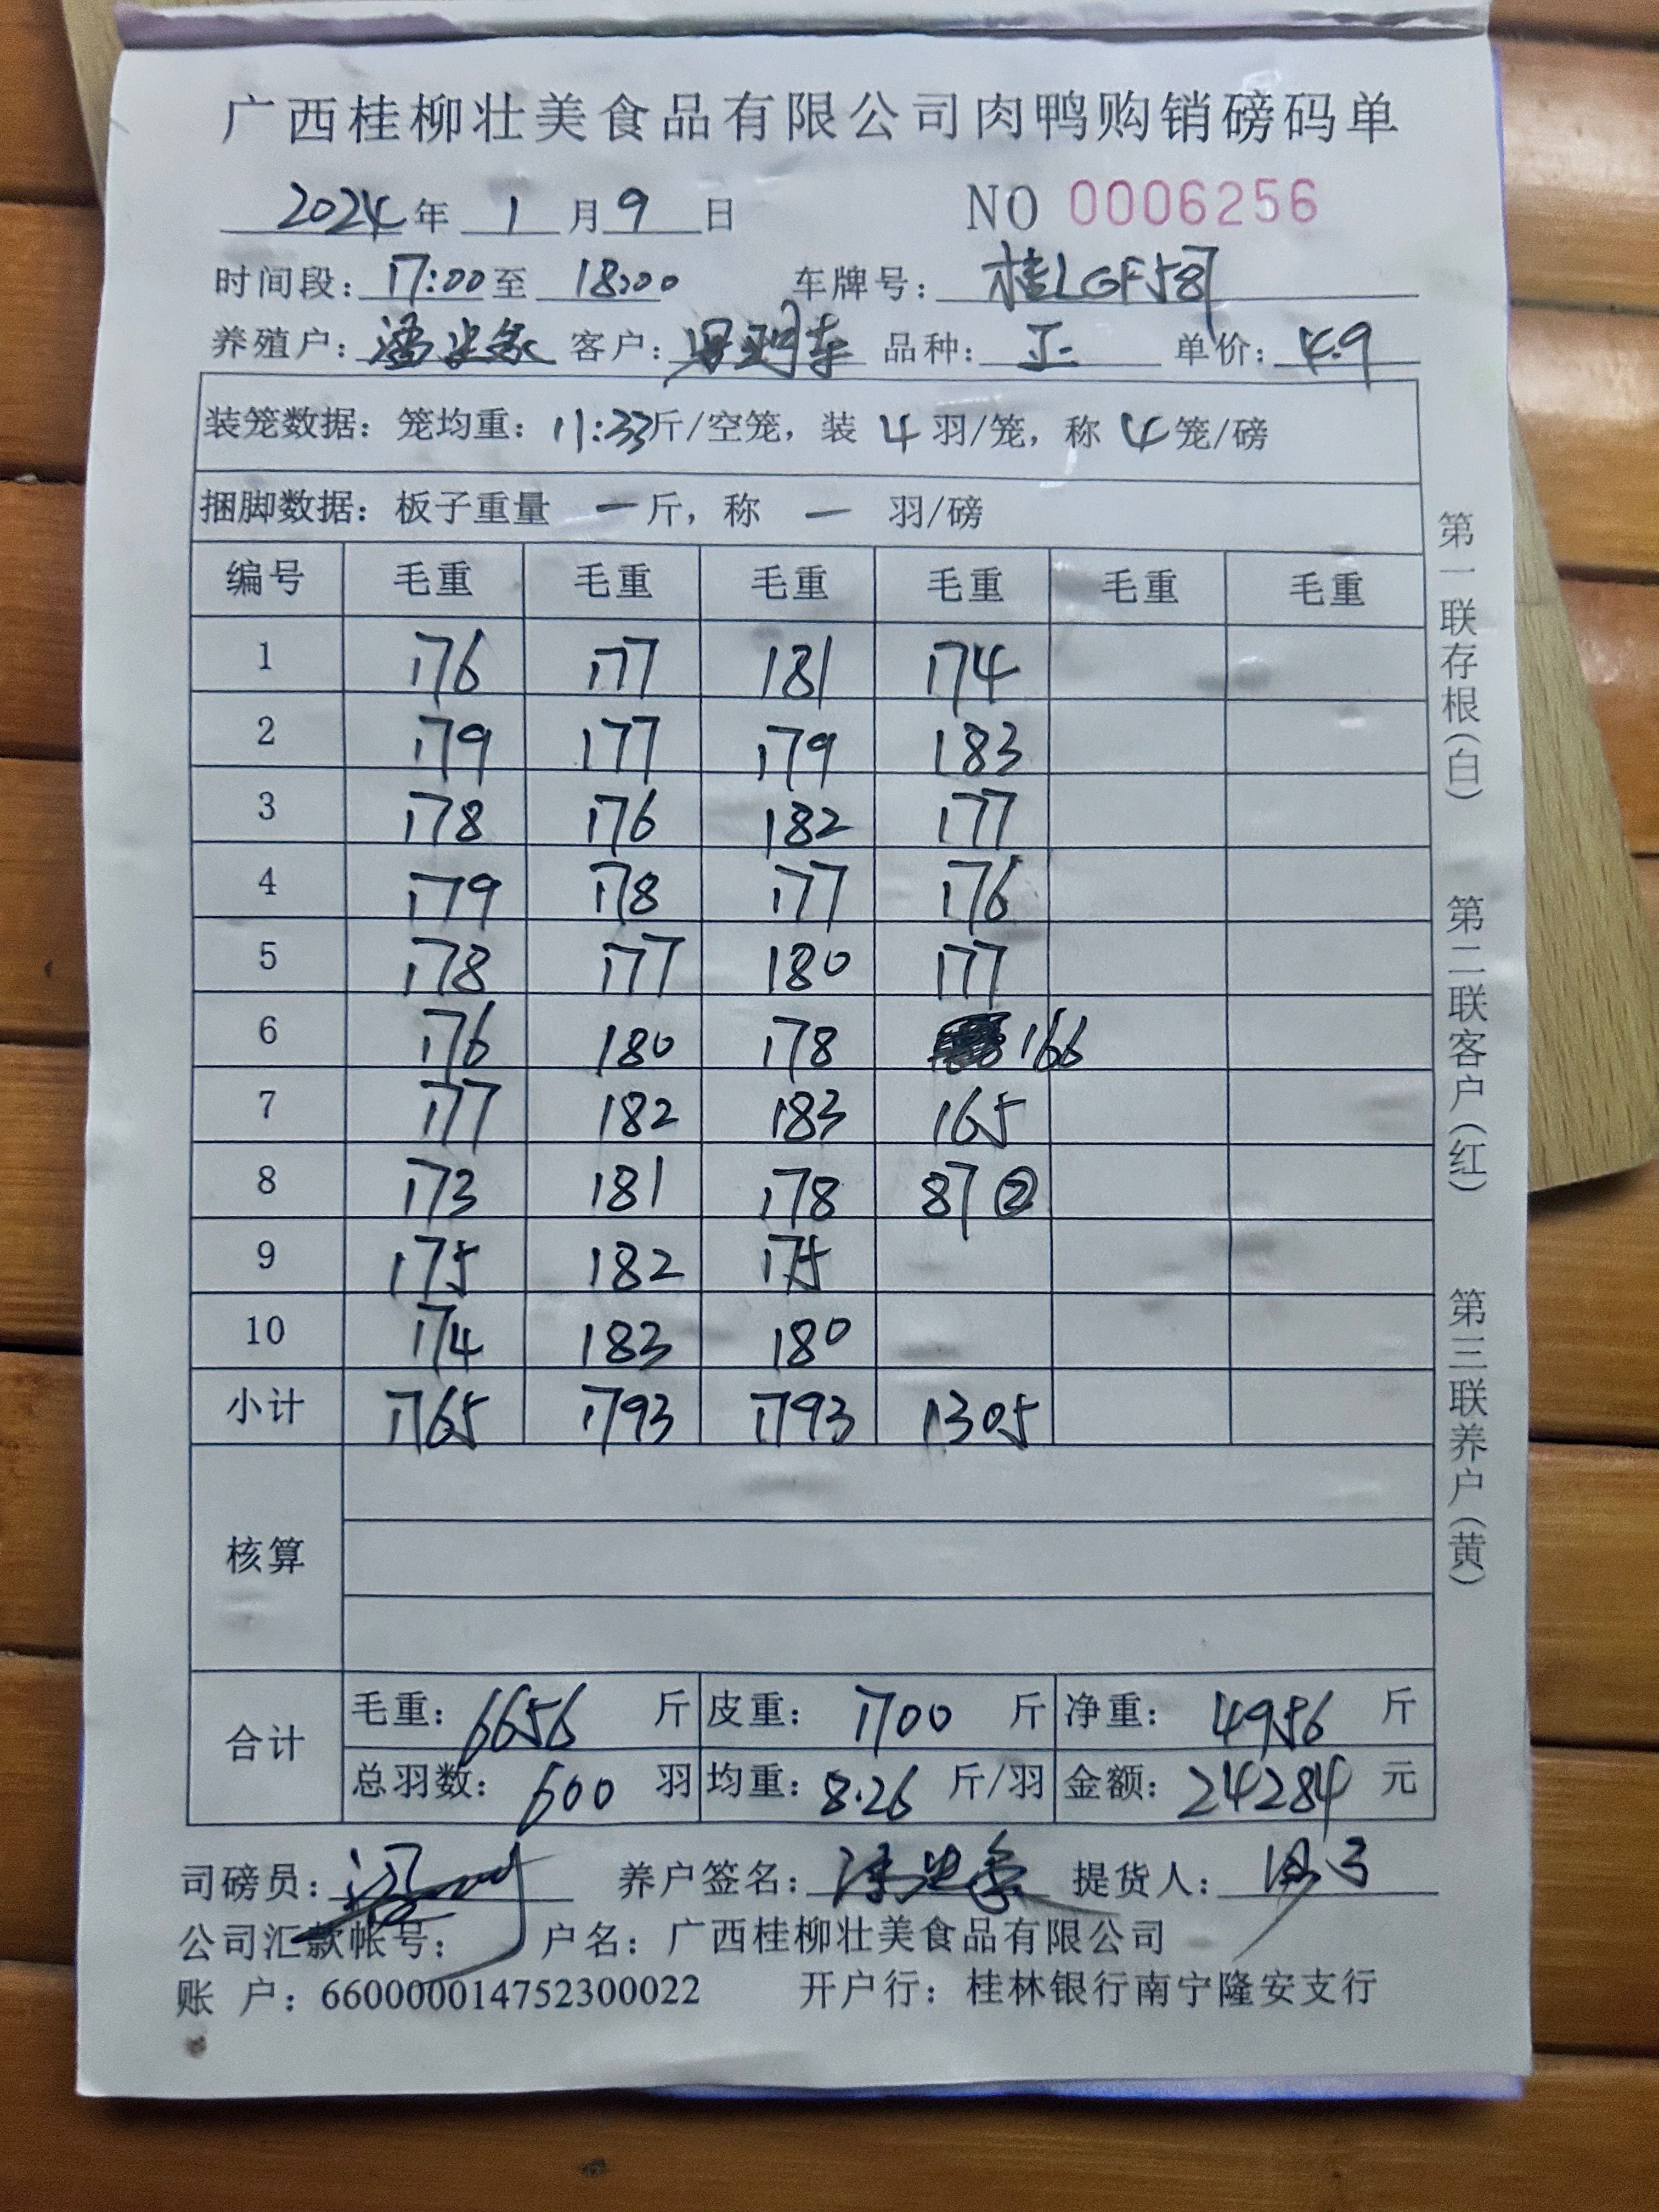 广西桂柳壮美食品有限公司肉鸭购销磅码单
2024年 1月9日 NO 0006256
时间段：17:00至 18:00 车牌号：桂LGF587
养殖户： 客户： 品种：正 单价：4.9
装笼数据：笼均重：11:33斤/空笼，装 4 羽/笼，称 4 笼/磅
捆脚数据：板子重量 一 斤，称 一 羽/磅
编号 毛重 毛重 毛重 毛重 毛重 毛重
1 176 177 181 174
2 179 177 179 183
3 178 176 182 177
4 179 178 177 176
5 178 177 180 177
6 176 180 178 166
7 177 182 183 165
8 173 181 178 87 ②
9 175 182 175
10 174 183 180
小计 1765 1793 1793 1305
核算
合计 毛重：6656 斤 皮重：1700 斤 净重：4956 斤
总羽数：600 羽 均重：8.26 斤/羽 金额：24284 元
司磅员： 养户签名： 提货人：
公司汇款帐号： 户名：广西桂柳壮美食品有限公司
账 户：660000014752300022 开户行：桂林银行南宁隆安支行
第一联存根(白) 第二联客户(红) 第三联养户(黄)